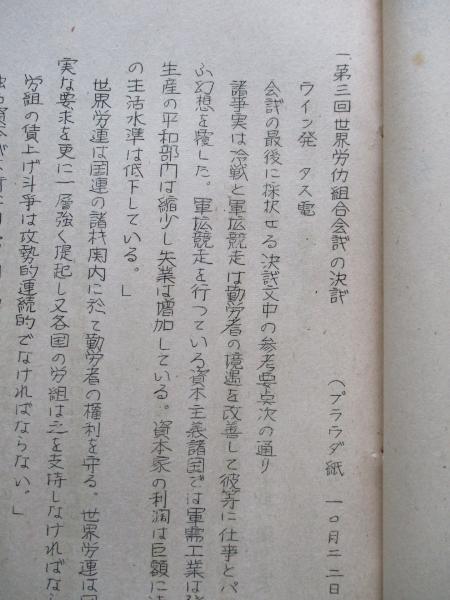 一、第三回世界労仂組合会議の決議　（プラウダ紙　一〇月二二日
ウイン発　タス電
会議の最後に採択せる決議文中の参考要点次の通り
諸事実は冷戦と軍拡競走は勤労者の境遇を改善して彼等に仕事とパ
ふ幻想を覆した。軍拡競走を行つている資本主義諸国では軍需工業は
生産の平和部門は縮少し失業は増加している。資本家の利潤は巨額に
の生活水準は低下している。」
世界労連は国連の諸機関内に於て勤労者の権利を守る。世界労連は
実な要求を更に一層強く提起し又各国の労組は之を支持しなければな
労組の賃上げ斗争は攻勢的連続的でなければならない。」